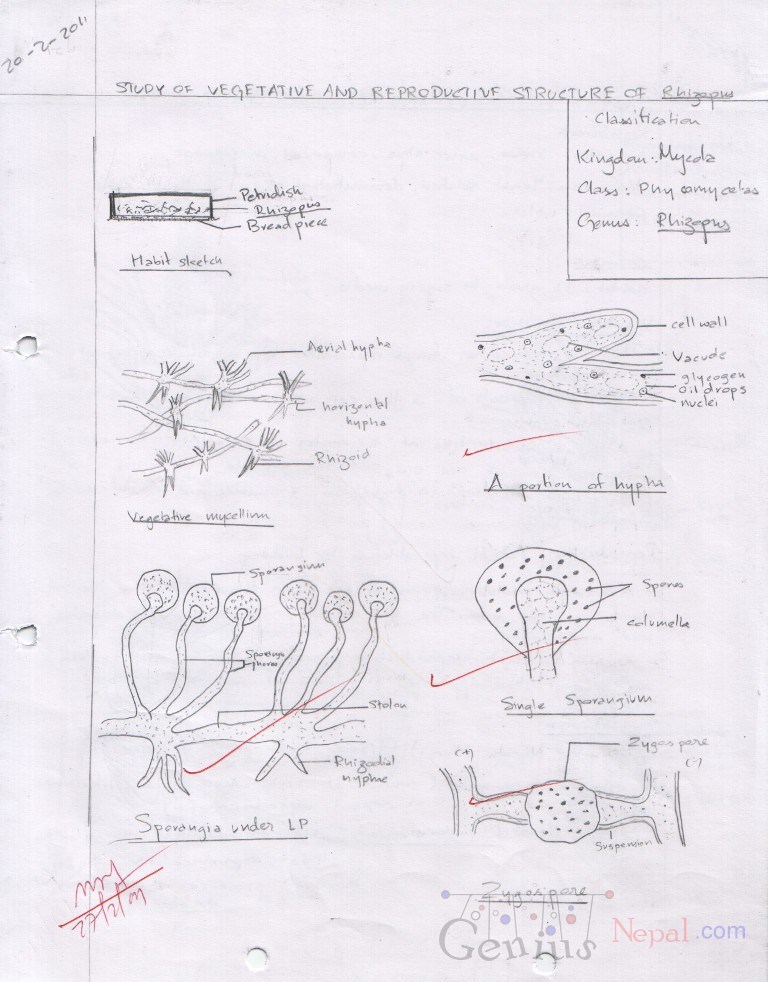 20-2-2011
STUDY OF VEGETATIVE AND REPRODUCTIVE STRUCTURE OF Rhizopus
Classification
Kingdom: Mycota
Class: Phycomycetes
Genus: Rhizopus
Petridish
Rhizopus
Bread piece
Habit sketch
Aerial hypha
horizontal
hypha
Rhizoid
Vegetative mycellium
cell wall
Vacuole
glycogen
oil drops
nuclei
A portion of hypha
Sporangium
Sporangio
phores
Stolon
Rhizodial
hyphae
Sporangia under LP
Spores
columella
Single Sporangium
Zygospare
(+)
(-)
Suspension
Zygospare
Genius Nepal.com